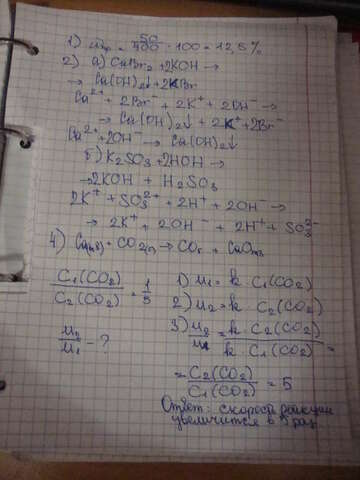 1) ω% = 50/400 · 100 = 12,5 %
2) а) CuBr₂ + 2KOH →
→ Cu(OH)₂↓ + 2KBr
Cu²⁺ + 2Br⁻ + 2K⁺ + 2OH⁻ →
→ Cu(OH)₂↓ + 2K⁺ + 2Br⁻
Cu²⁺ + 2OH⁻ → Cu(OH)₂↓
б) K₂SO₃ + 2HOH →
→ 2KOH + H₂SO₃
2K⁺ + SO₃²⁺ + 2H⁺ + 2OH⁻ →
→ 2K⁺ + 2OH⁻ + 2H⁺ + SO₃³⁻
4) + CO₂ → CO +
C₁(CO₂)/C₂(CO₂) = 1/5
1) u₁ = k · C₁(CO₂)
2) u₂ = k · C₂(CO₂)
u₂/u₁ - ?
3) u₂/u₁ = k · C₂(CO₂)/k · C₁(CO₂) =
= C₂(CO₂)/C₁(CO₂) = 5
Ответ: скорость реакции
увеличится в 5 раз